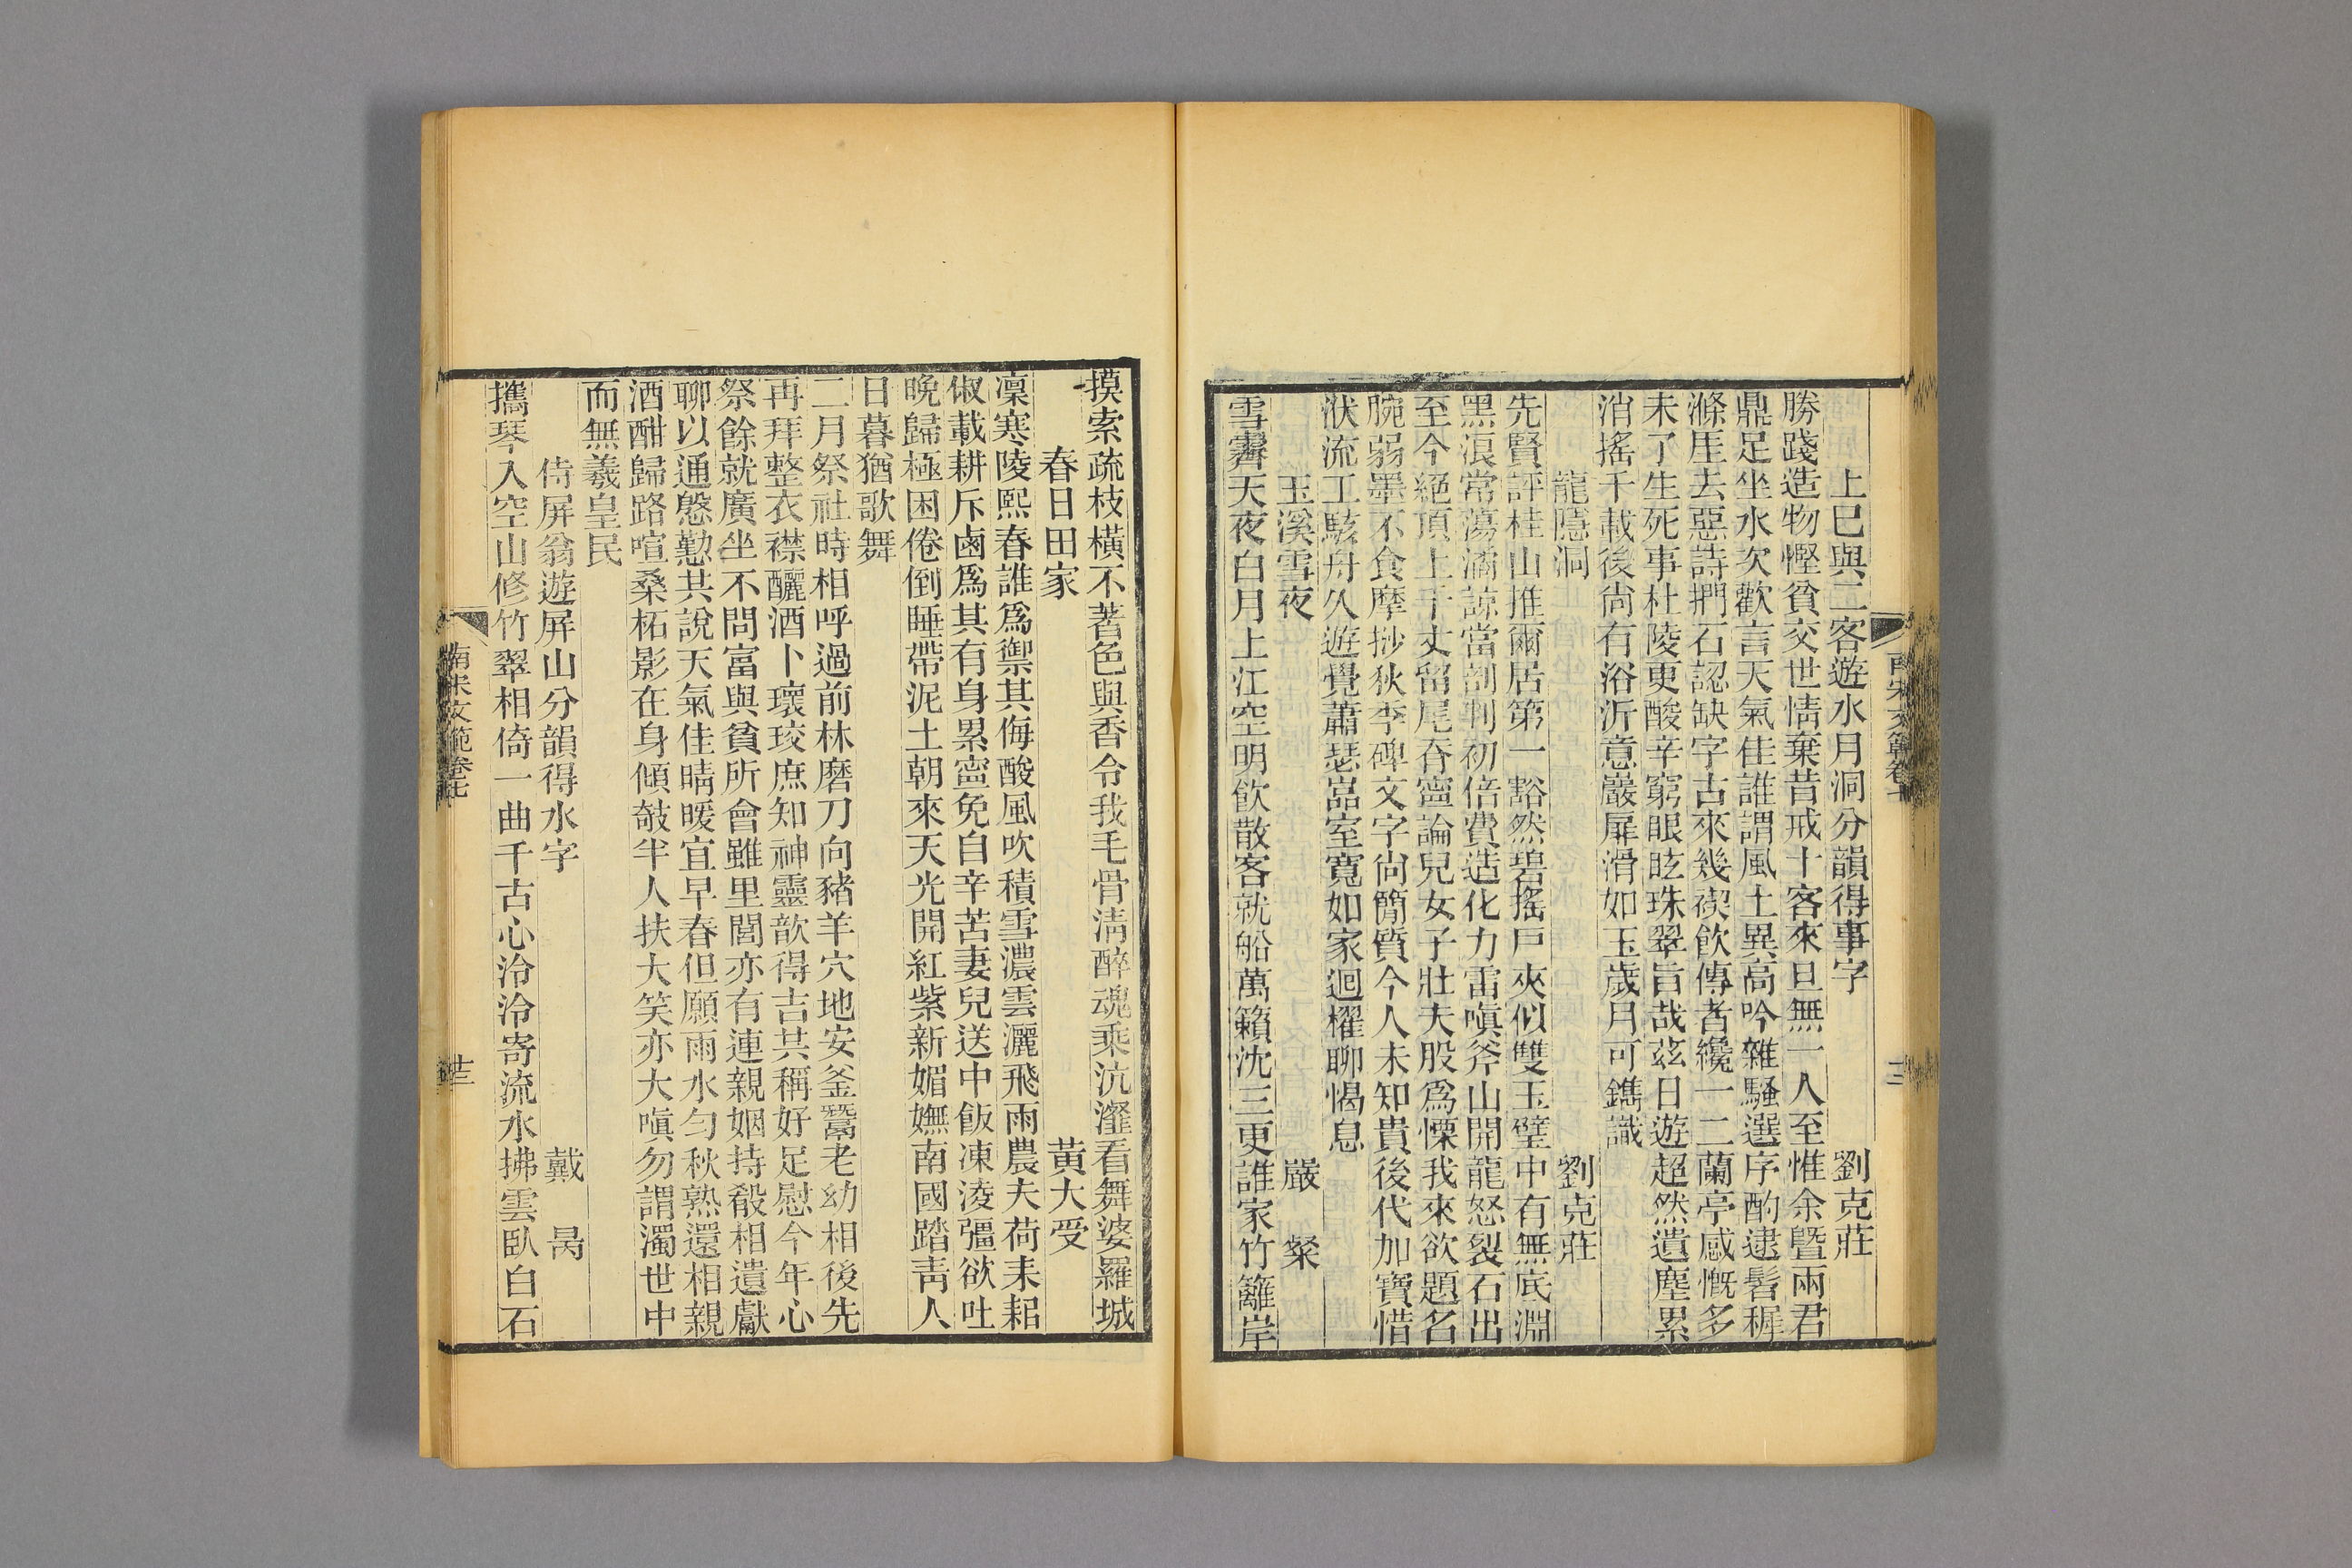 上巳與二客遊水月洞分韻得事字　劉克莊
勝踐造物慳貧交世情棄昔戒十客來旦無一人至惟余暨兩君
鼎足坐水次歡言天氣佳誰謂風土異高吟雜騷選序酌逮髫穉
滌厓去惡詩捫石認缺字古來幾禊飲傳者纔一二蘭亭感慨多
未了生死事杜陵更酸辛窮眼眩珠翠旨哉茲日遊超然遺塵累
消搖千載後尙有浴沂意巖扉滑如玉歲月可鐫識
龍隱洞　劉克莊
先賢評桂山推爾居第一豁然碧搖戶夾似雙玉壁中有無底淵
黑浪常蕩潏諒當剖判初倍費造化力雷嗔斧山開龍怒裂石出
至今絕頂上千丈留尾脊寧論兒女子壯夫股爲慄我來欲題名
腕弱墨不食摩挱狄李碑文字尙簡質今人未知貴後代加寶惜
洑流工駭舟久遊覺蕭瑟嵓室寬如家迴櫂聊愒息
玉溪雪夜　嚴粲
雪霽天夜白月上江空明飮散客就船萬籟沈三更誰家竹籬岸
摸索疏枝橫不著色與香令我毛骨淸醉魂乘沆瀣看舞婆羅城
春日田家　黃大受
凜寒陵熙春誰爲禦其侮酸風吹積雪濃雲灑飛雨農夫荷耒耜
俶載耕斥鹵爲其有身累寧免自辛苦妻兒送中飯凍淩彊欲吐
晩歸極困倦倒睡帶泥土朝來天光開紅紫新媚嫵南國踏靑人
日暮猶歌舞
二月祭社時相呼過前林磨刀向豬羊穴地安釜鬵老幼相後先
再拜整衣襟釃酒卜瓌珓庶知神靈歆得吉共稱好足慰今年心
祭餘就廣坐不問富與貧所會雖里閭亦有連親姻持殽相遺獻
聊以通慇懃共說天氣佳晴暖宜早春但願雨水勻秋熟還相親
酒酣歸路喧桑柘影在身傾攲半人扶大笑亦大嗔勿謂濁世中
而無羲皇民
侍屏翁遊屏山分韻得水字　戴昺
攜琴入空山修竹翠相倚一曲千古心泠泠寄流水拂雲臥白石
南宋文範卷七